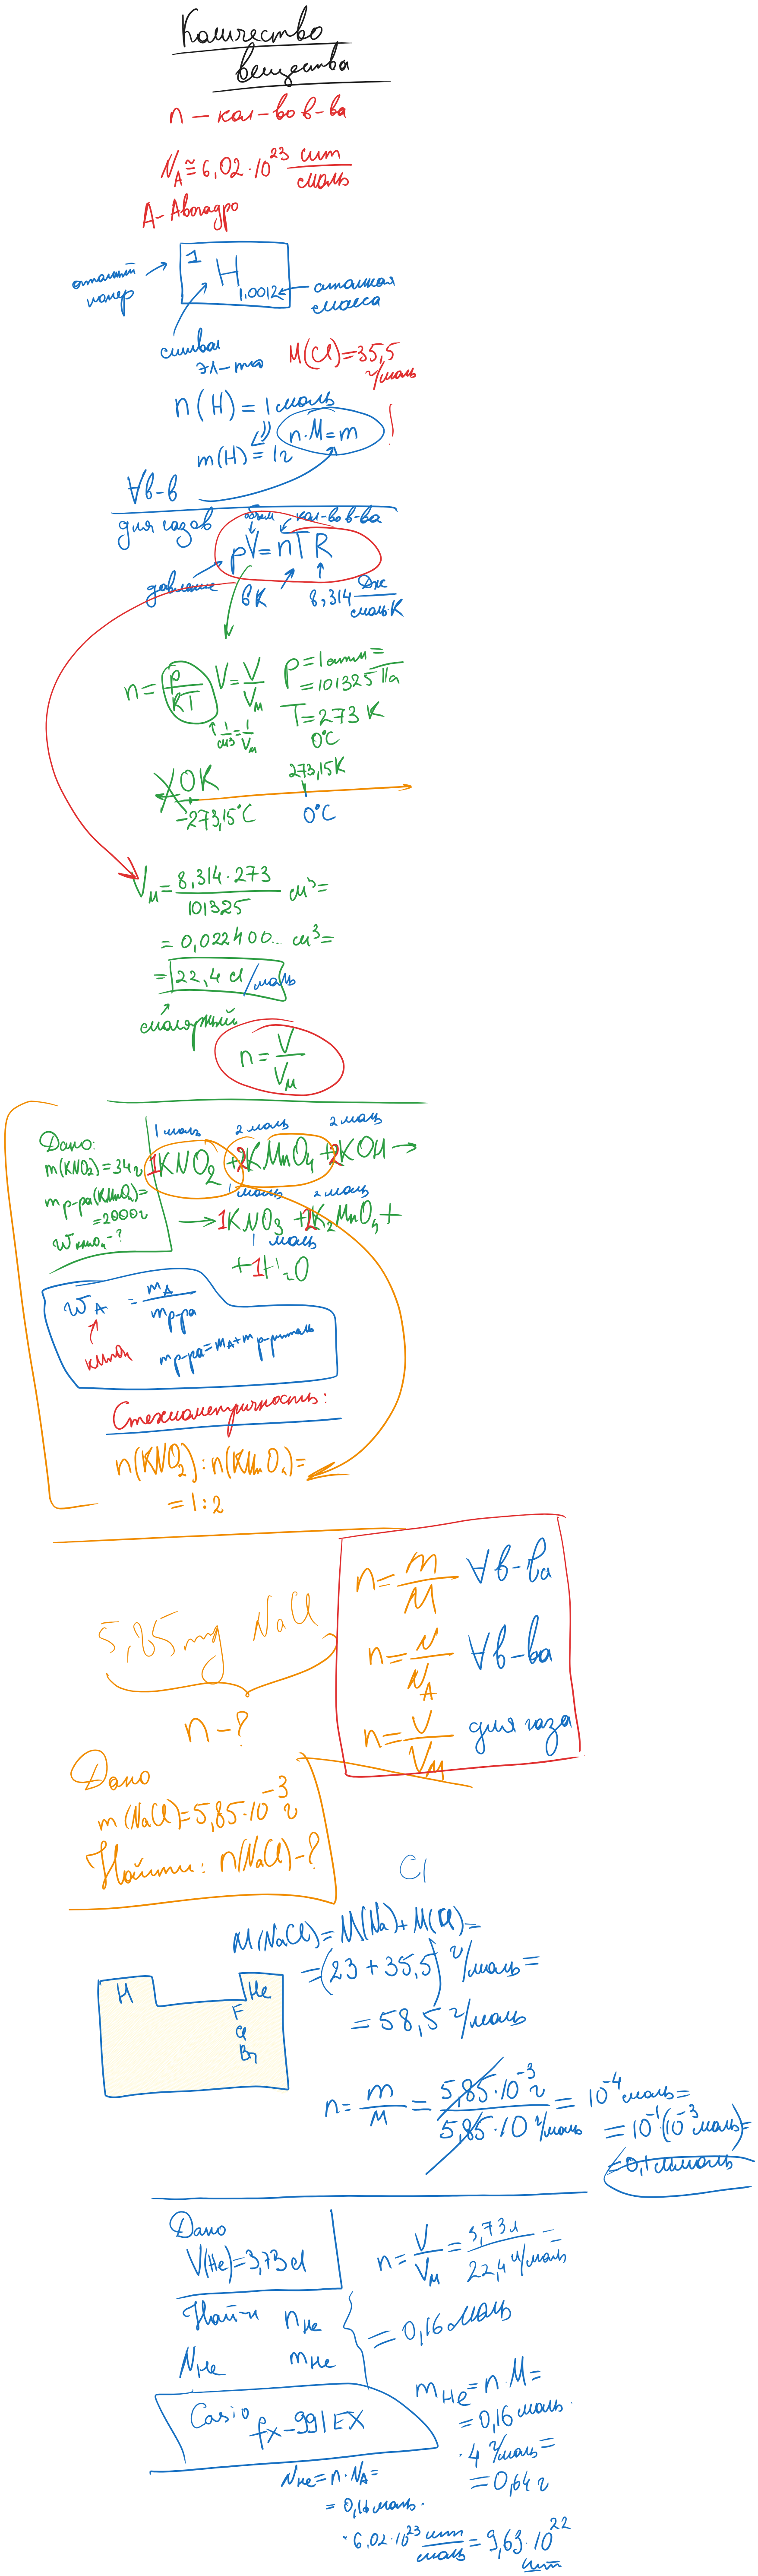 Количество
вещества
n – кол-во в-ва
N_A ≅ 6,02·10^23 шт/моль
А - Авогадро
1
H
1,0012
атомный номер
атомная масса
символ эл-та
M(Cl)=35,5 г/моль
n(H) = 1 моль
n·M=m
m(H) = 1г
∀в-в
для газов
объем
кол-во в-ва
pV=nTR
давление
в К
8,314 Дж/моль·К
n= p/RT V= V/V_M
1/м³ = 1/V_M
p=1атм=
=101325 Па
T=273 K
0°C
0K
273,15K
-273,15°C
0°C
V_M= 8,314·273/101325 м³=
= 0,022400... м³=
= 22,4 л/моль
молярный
n= V/V_M
Дано:
m(KNO2)=34г
m р-ра(KMnO4)=
=2000г
W KMnO4 -?
1 моль 2 моль 2 моль
1KNO2 +2KMnO4 +2KOH →
1 моль 2 моль
→ 1KNO3 +2K2MnO4+
1 моль
+1H2O
W_A = m_A/m р-ра
KMnO4
m р-ра=m_A+m р-ритель
Стехиометричность:
n(KNO2):n(KMnO4)=
= 1:2
n= m/M ∀в-ва
n= N/N_A ∀в-ва
n= V/V_M для газа
5,85 mg NaCl
n-?
Дано
m(NaCl)=5,85·10^-3 г
Найти: n(NaCl)-?
Cl
M(NaCl)=M(Na)+M(Cl)=
=(23+35,5) г/моль=
= 58,5 г/моль
H
He
F
Cl
Br
n= m/M = 5,85·10^-3 г / 5,85·10 г/моль = 10^-4 моль=
= 10^-1(10^-3 моль)=
=0,1 ммоль
Дано
V(He)=3,73л
n= V/V_M = 3,73л / 22,4 л/моль =
= 0,16 моль
Найти n_He
N_He m_He
Casio fx-991EX
m_He=n·M=
=0,16 моль·
·4 г/моль=
=0,64г
N_He=n·N_A=
= 0,16 моль·
·6,02·10^23 шт/моль = 9,63·10^22 шт